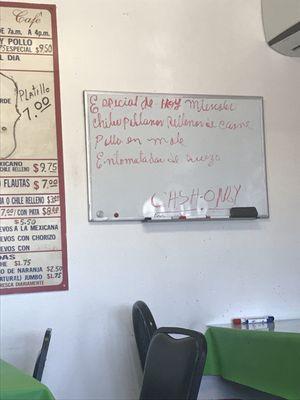 Café
DE 7a.m. A 4p.m.
Y POLLO
ESPECIAL $9.50
DEL DIA
PLATILLO
7.00
VERDE
MEXICANO
CHILE RELLENO $9.75
FLAUTAS $7.00
O CHILE RELLENO $3.00
7.00/CON PATA $8.00
$5.50
HUEVOS A LA MEXICANA
HUEVOS CON CHORIZO
HUEVOS CON
$1.75
DE NARANJA $2.50
NATURAL) JUMBO $1.75
FRESCA DIARIAMENTE
Especial de HOY Miercoles
Chiles Poblanos Rellenos de carne
Pollo en mole
Entomatadas de queso
CASH ONLY